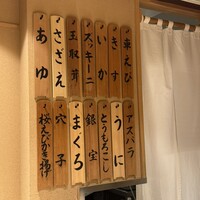 車えび
きす
いか
ズッキーニ
玉取茸
さざえ
あゆ
アスパラ
うに
とうもろこし
銀宝
まぐろ
穴子
桜えびかき揚げ